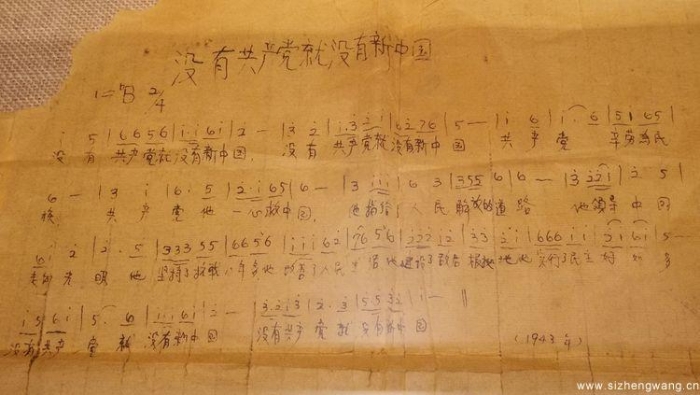 没有共产党就没有新中国
1=♭B 2/4
i 5 | 6 6 5 6 | i i 6 i | 2 — | 3 2 | i. 3 2 i | 6 2 7 6 | 5 — | i 6 | i . 6 | 5 i 6 5 |
没有 共产党就没有新中国. 没有 共产党就没有新中国 共产党 辛劳为民
6 — | 3 i | 6 . 5 | 2 . i 6 5 | 6 — | 3 i i i | 6 3 | 3 5 5 6 | 6 — | 3 2 2 i | 2 5 |
族 共产党他一心救中国. 他指给了人民解放的道路 他领导中国
6 i 2 | 2 . 5 | 3 3 3 5 5 | 6 6 5 6 | i i i 6 2 | 7 6 5 6 | 2 2 2 i 2 | 3 3 i i | 6 6 6 i i | 2 i 6 i | 5 —
走向光明 他坚持了抗战八年多他改善了人民生活他建设了敌后根据地他实行了民主好处多
i 5 6 i | 5 . 6 | i i 6 i | 2 — | 3 2 i 3 | 2 . 3 | 5 5 3 2 | i — ‖
没有共产党就没有新中国 没有共产党就没有新中国
(1943年)
www.sizhengwang.cn